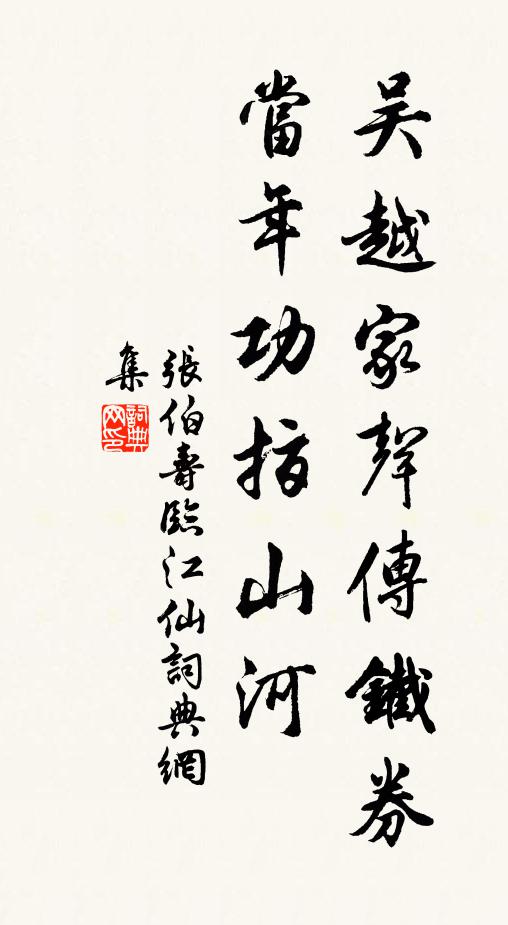 吴越家聲傳鐵券
當年功指山河
張伯壽臨江仙詞典網
集
詞典網印